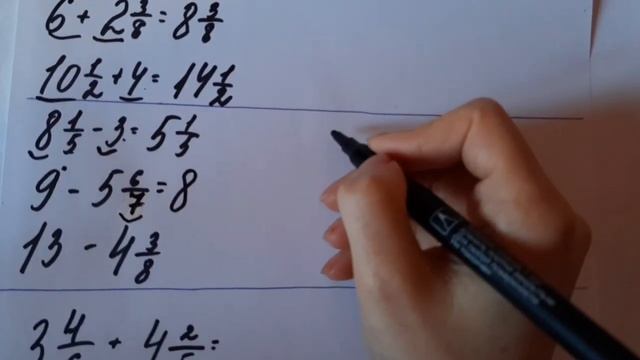 6 + 2 3/8 = 8 3/8
10 1/2 + 4 = 14 1/2
8 1/5 - 3 = 5 1/5
9 - 5 6/7 = 8
13 - 4 3/8
3 4/ + 4 2/ =